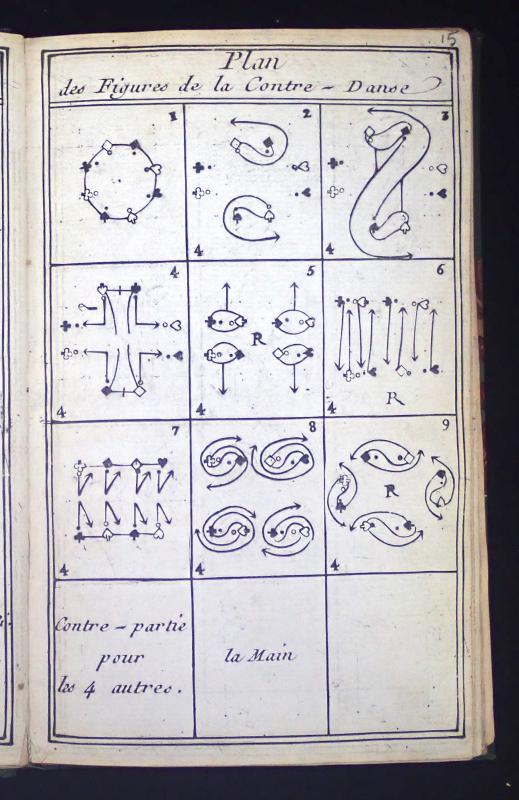 15
Plan
des Figures de la Contre - Danse
1
2
3
4
4
4
5
R
6
4
4
4
R
7
8
9
R
4
4
4
Contre - partie
pour
les 4 autres.
la Main